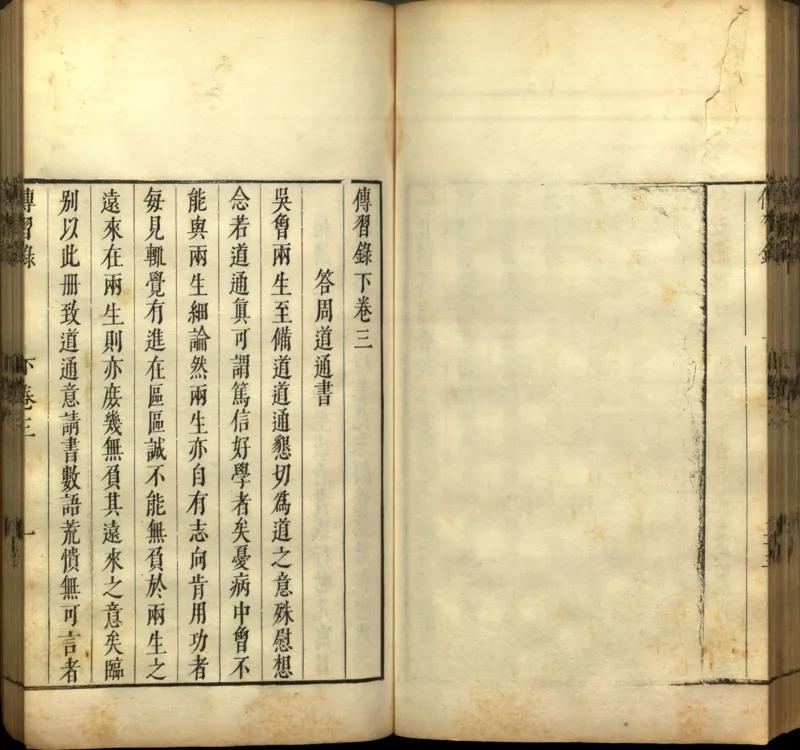 傳習錄下卷三
答周道通書
吳曾兩生至備道道通懇切為道之意殊慰想
念若道通真可謂篤信好學者矣憂病中曾不
能與兩生細論然兩生亦自有志向肯用功者
每見輒覺有進在區區誠不能無負於兩生之
遠來在兩生則亦庶幾無負其遠來之意矣臨
別以此冊致道通意請書數語荒憒無可言者
傳習錄 下卷三 一